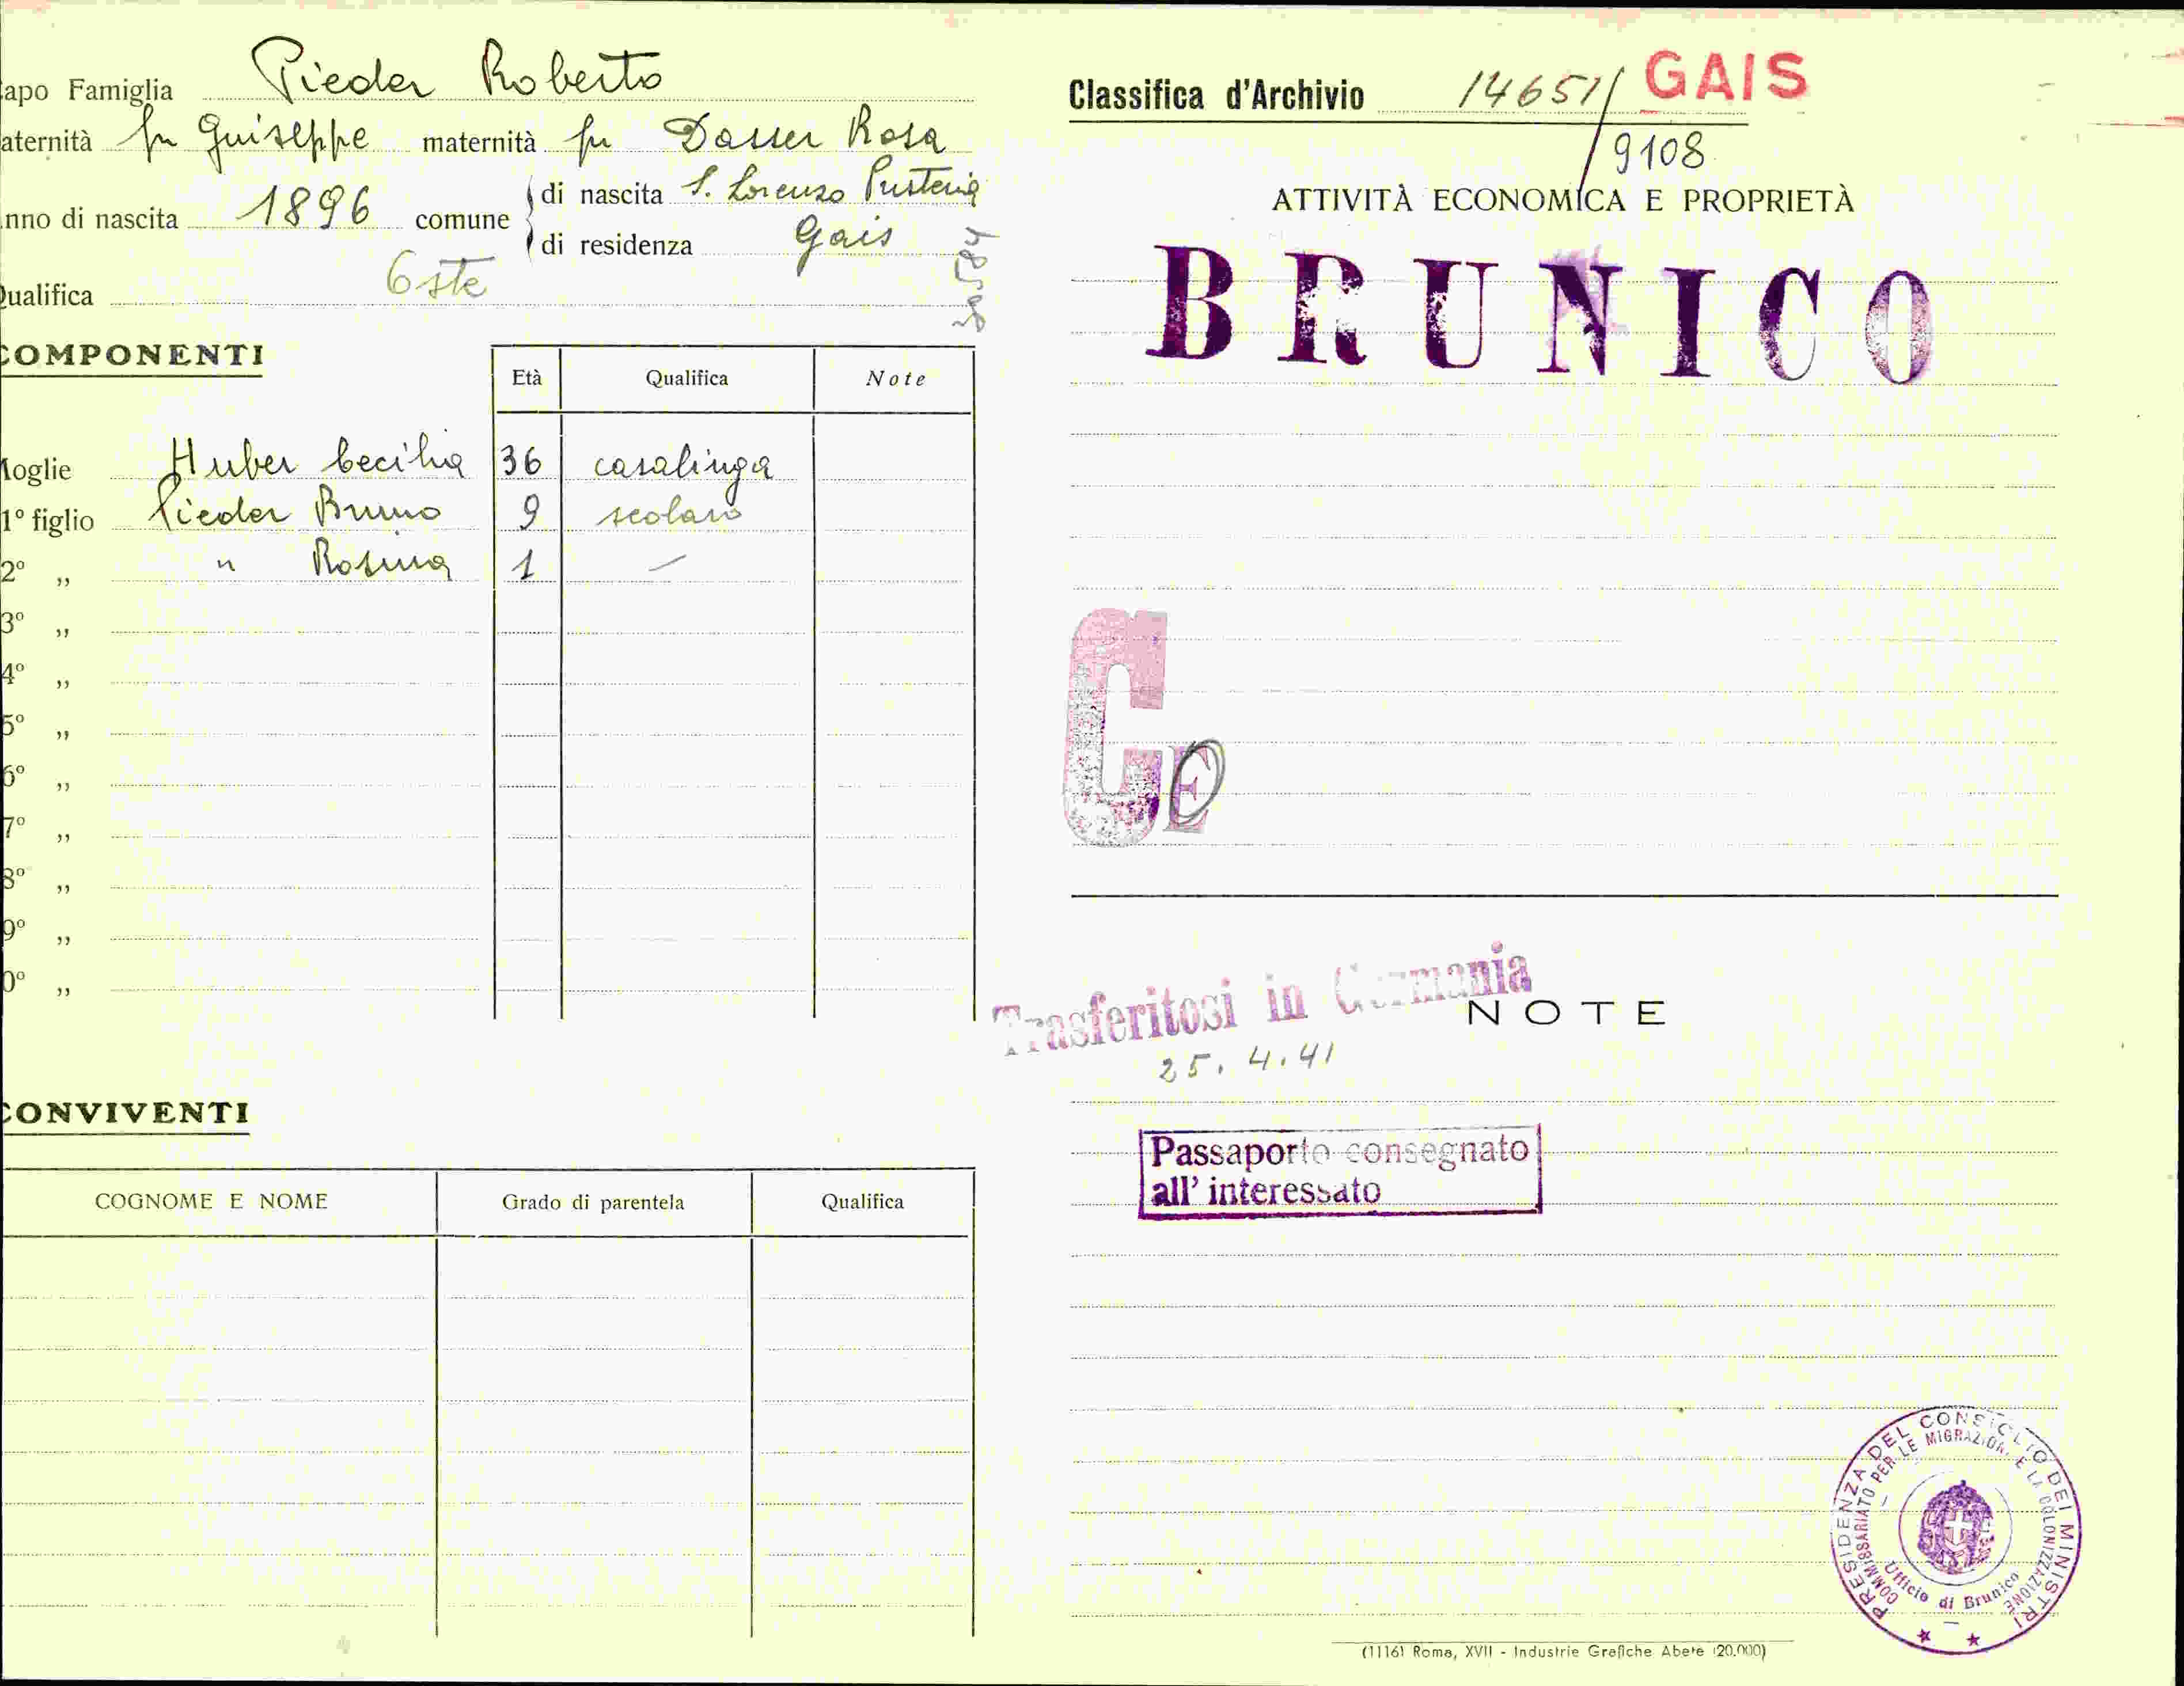 apo Famiglia Pieder Roberto
aternità fu Guiseppe maternità fu Dasser Rosa
nno di nascita 1896 comune di nascita S. Lorenzo Pusteria
di residenza Gais
ualifica Oste
COMPONENTI
Età Qualifica Note
oglie Huber Cecilia 36 casalinga
1° figlio Pieder Bruno 9 scolaro
2° ,, " Rosina 1 —
3° ,,
4° ,,
5° ,,
6° ,,
7° ,,
8° ,,
9° ,,
0° ,,
CONVIVENTI
COGNOME E NOME Grado di parentela Qualifica
Classifica d'Archivio 14651/ GAIS
9108
ATTIVITÀ ECONOMICA E PROPRIETÀ
BRUNICO
C
E
Trasferitosi in Germania
NOTE
25.4.41
Passaporto consegnato
all' interessato
PRESIDENZA DEL CONSIGLIO DEI MINISTRI
COMMISSARIATO PER LE MIGRAZIONI E LA COLONIZZAZIONE
Ufficio di Brunico
(1116) Roma, XVII - Industrie Grafiche Abete (20.000)